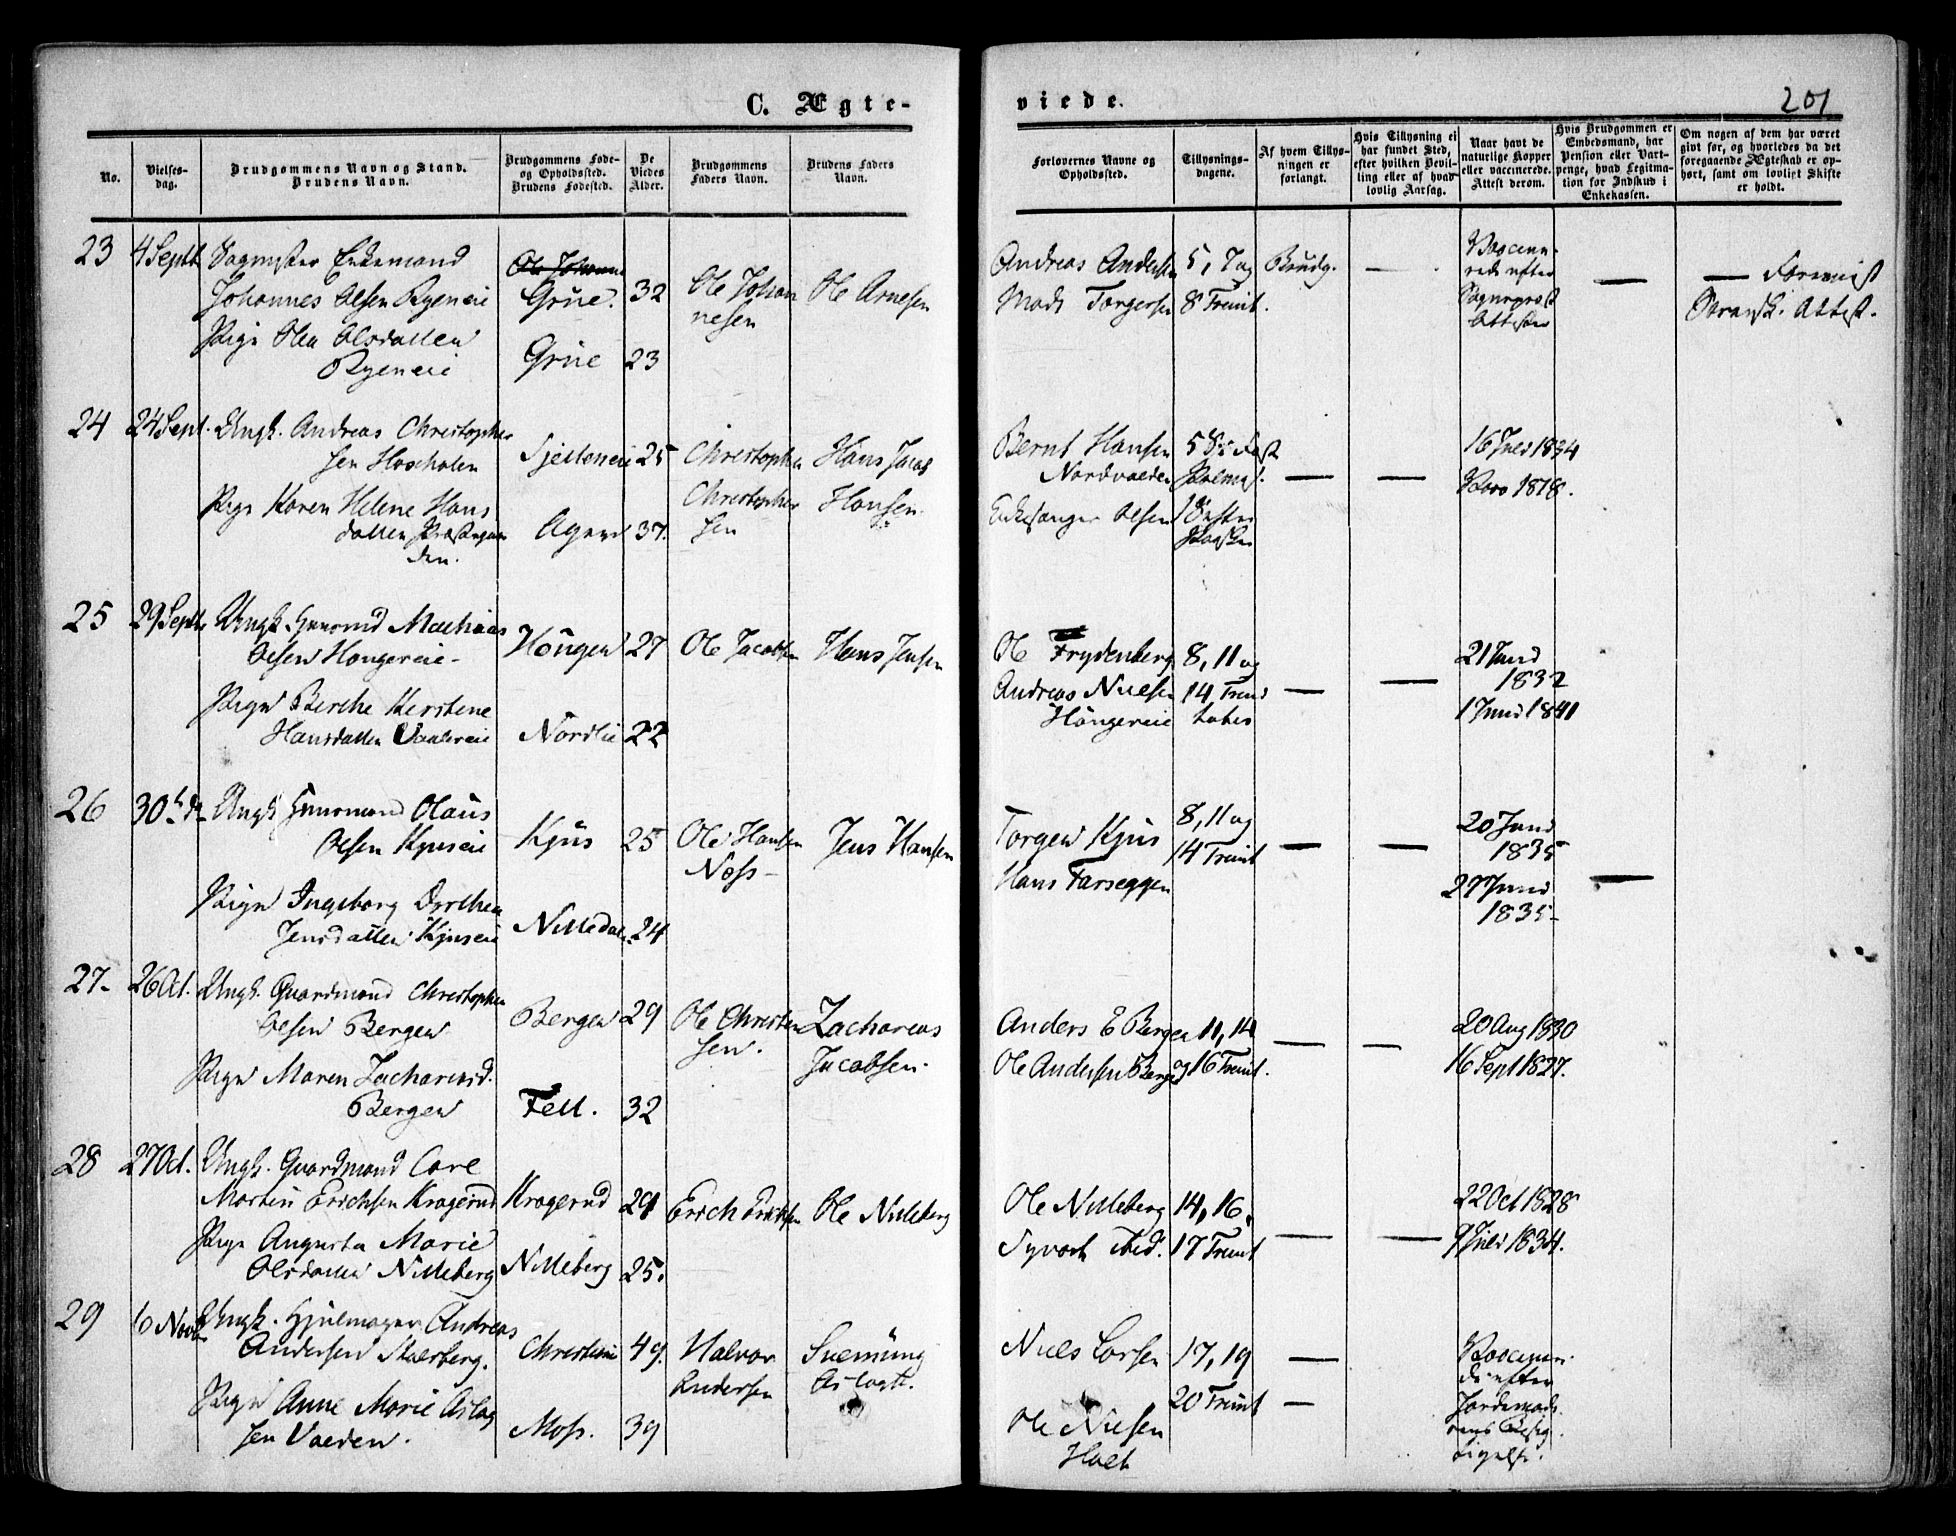 C. Ægte-
No.
Vielses-
dag.
Brudgommens Navn og Stand.
Brudens Navn.
Brudgommens Føde-
og Opholdssted.
Brudens Fødested.
De
Viedes
Alder.
Brudgommens
Faders Navn.
Brudens Faders
Navn.
23 4 Septb
Enkemand
Ole Johann
Johannes Olsen Ryeneie
Grue. 32
Ole Johan
nesen
Ole Arnesen
Pige Olea Olsdatter
Ryeneie
Grue 23
24 24 Sept. Ungk. Andreas Christopher
sen
25
Christopher
Christopher
sen
Hans Jacob
Hansen
Pige Karen Helene Hans
datter Præstegaar
den.
Ager 37.
25 29 Septb Ungk. Huusmd Mathias
Olsen Hougereie
27 Ole Jacobsen Hans Jensen
Pige Berthe Kirstine
Hansdatter
Nordlie 22
26 30te ds Ungk Huusmand Olaus
Olsen Kjuseie
Kjus 25
Ole Hansen
Næss
Jens Hansen
Pige Ingeborg Dorthea
Jensdatter Kjuseie
Nittedal 24
27- 26 Oct. Ungk. Gaardmand Christopher
Olsen Bergen
Bergen 29
Ole Christen
sen.
Zacharias
Jacobsen.
Pige Maren Zachariasd.
Bergen
Fett. 32
28 27 Oct. Ungk. Gaardmand Carl
Martin Erichsen Kragerud
Kragerud 29
Erich Erichsen
Ole Nitteberg
Pige Augusta Marie
Olsdatter Nitteberg
Nitteberg 25.
29 10 Novbr Ungk. Hjulmager Andreas
Andersen
Christiania 49.
Halvor
Andersen
Pige Anne Marie Aslag
sen Vaeden.
Moss. 39
viede.
201
Forlovernes Navne og
Opholdssted.
Tillysnings-
dagene.
Af hvem Tillys-
ningen er
forlangt.
Hvis Tillysning ei
har fundet Sted,
efter hvilken Bevil-
ling eller af hvad
lovlig Aarsag.
Naar havt de
naturlige Kopper
eller vaccinerede.
Attest derom.
Hvis Brudgommen er
Embedsmand, har
Pension eller Vart-
penge, hvad Legitima-
tion for Indskud i
Enkekassen.
Om nogen af dem har været
gift før, og hvorledes da det
foregaaende Ægteskab er op-
hørt, samt om lovligt Skifte
er holdt.
Andreas Andersen
5, 7 og
Brudg.
Vaccine-
rede efter
Sognepræst
Attester
Forevist
Attest.
Mads Torgersen
8 Trinit.
Bernt Hansen
Nordvaeden
16 Juli 1834
1818.
Olsen
Ole Frydenberg
8, 11 og
21 Juni
1832
Andreas Nielsen
Hougereie
14 Trini
tatis
1 Juni 1841
Torger Kjus
8, 11 og
14 Trinit
20 Juni
1835
Hans Farseggen
27 Juni
1835-
Anders E Bergen 11, 14
20 Aug 1830
Ole Andersen Berge og 16 Trinit.
16 Sept 1827.
Ole Nitteberg 14, 16.
22 Oct 1828
Syvert ibid. 17 Trinit
9 Juli 1834.
Niels Larsen 17, 19
20 Trinit
Vaccinere-
de efter
Jordemod
rens Besig
tigelse.
Ole Nielsen
Holt